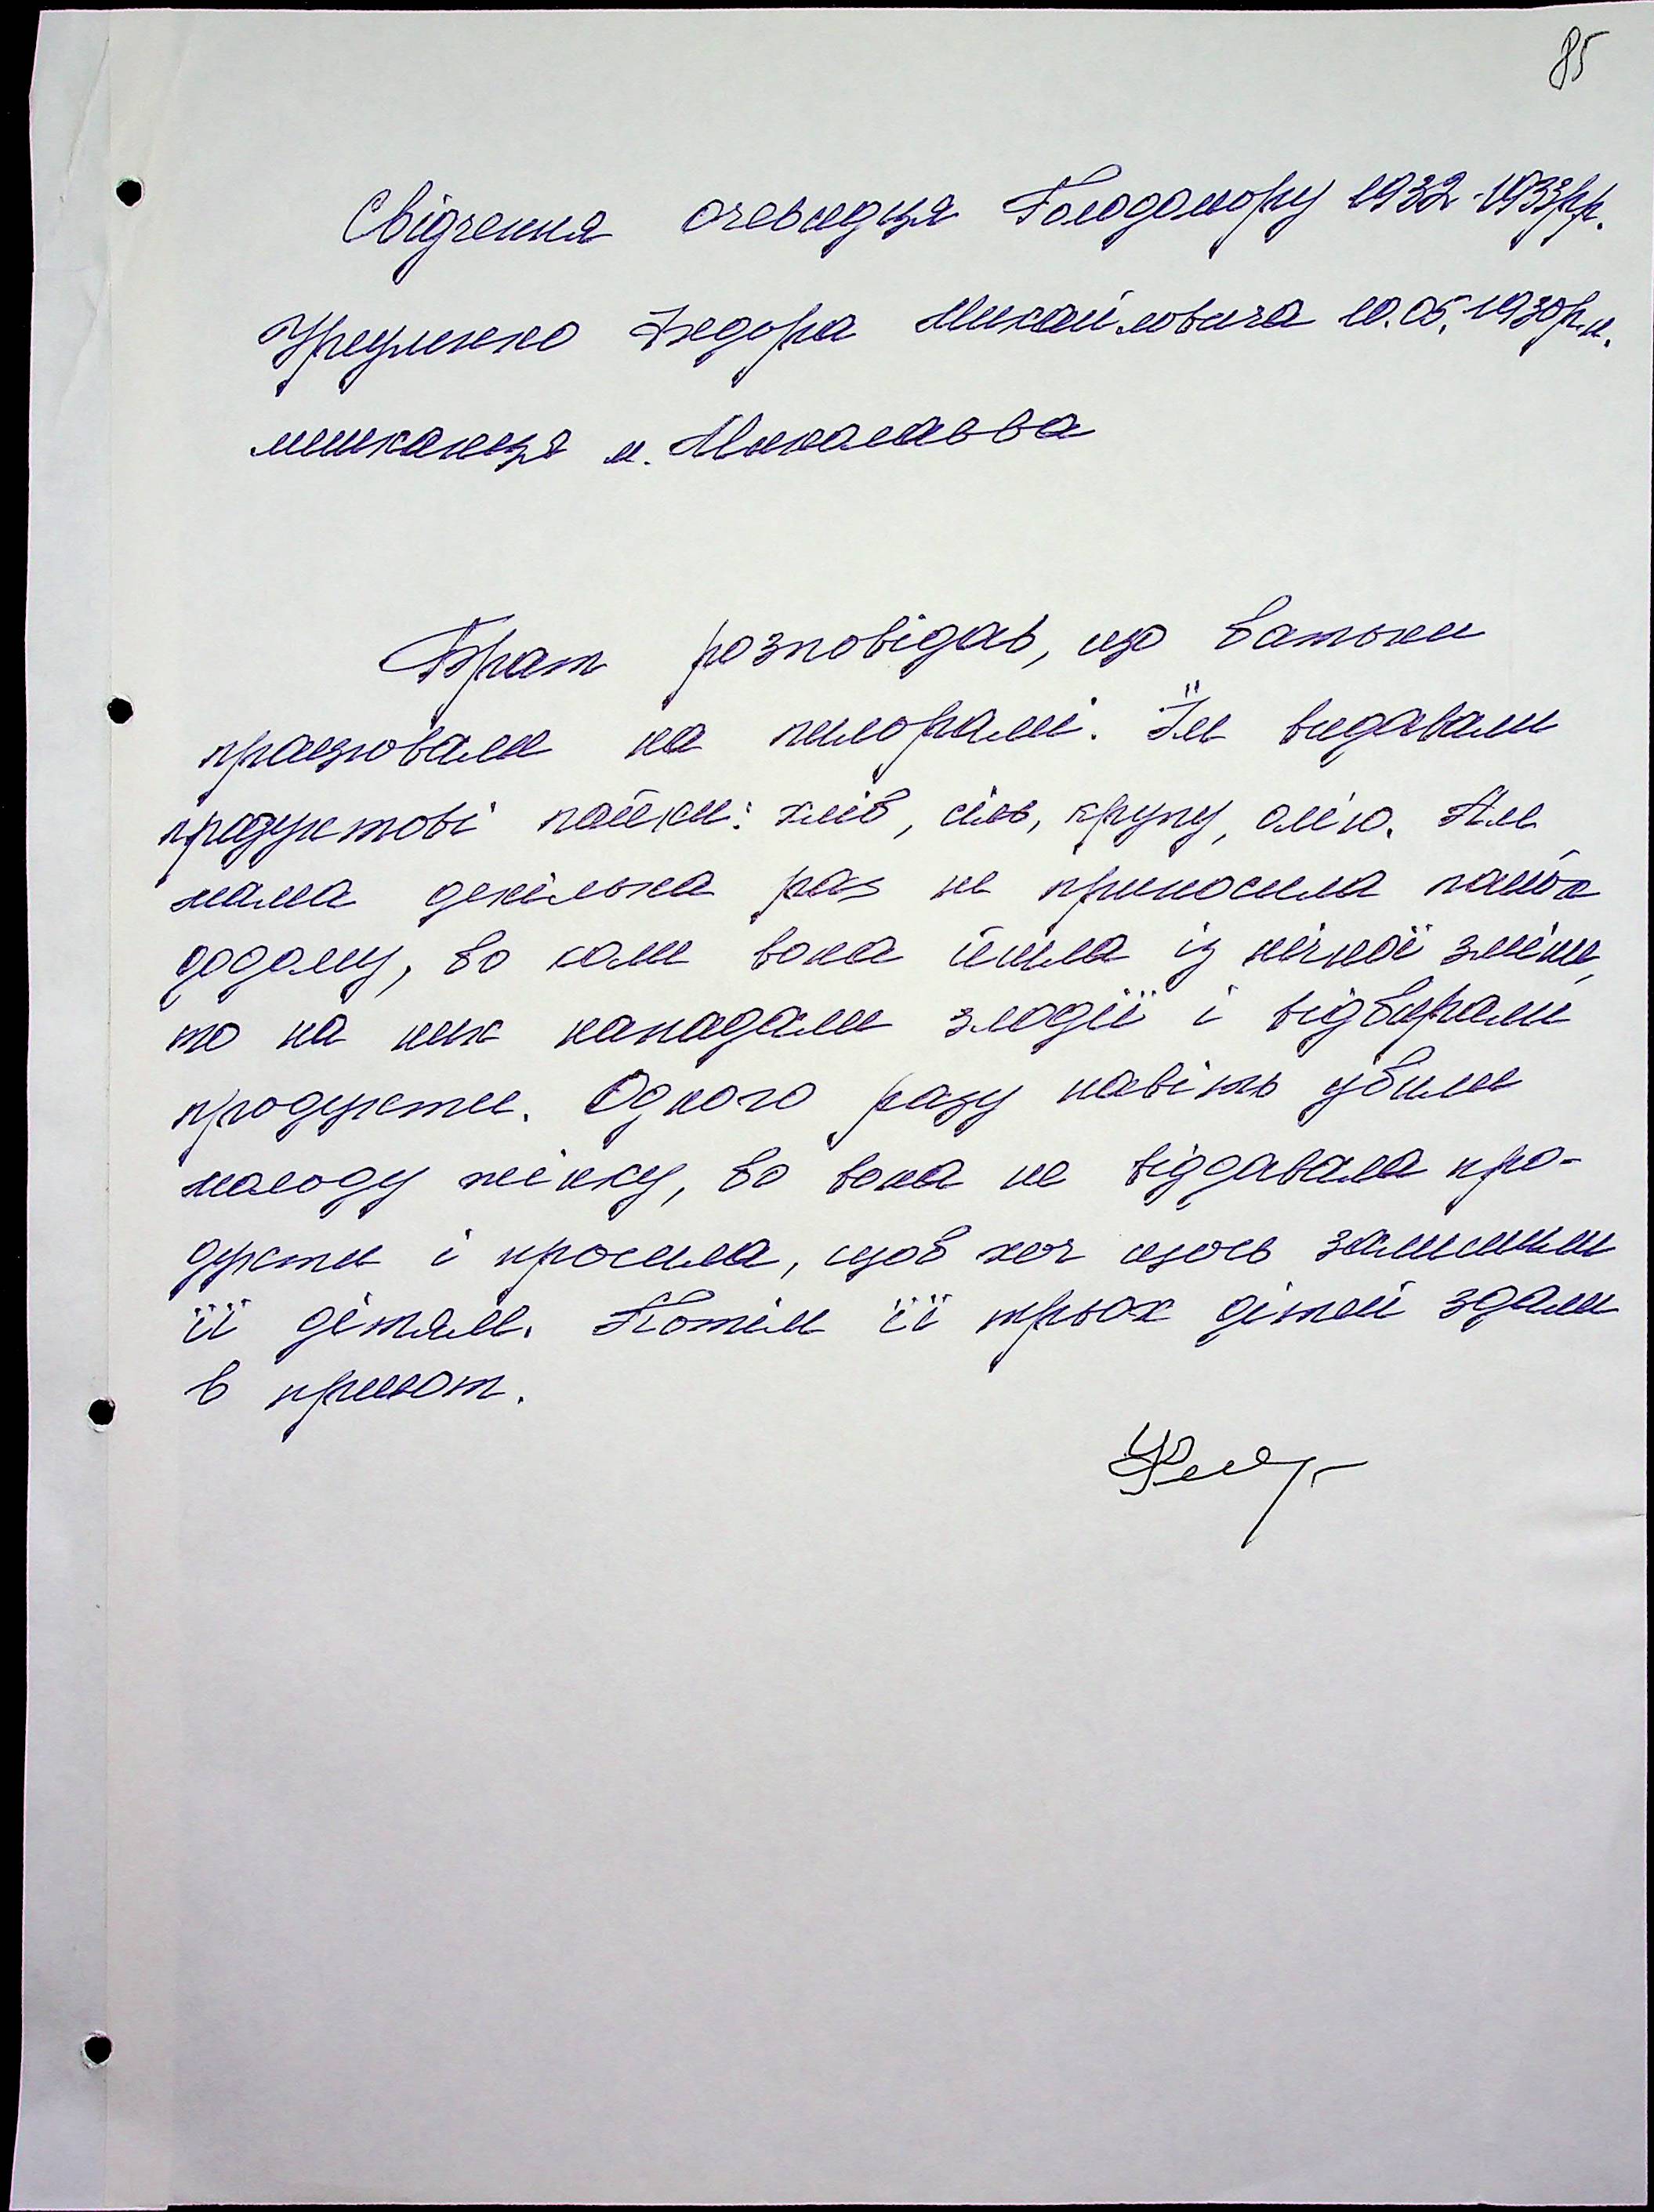 85
Свідчення очевидця Голодомору 1932-1933рр.
Федора Михайловича 10.05.1930р.н.
мешканця м. Миколаєва
Брат розповідав, що батьки
працювали на пилорамі. Їм видавали
продуктові пайки: хліб, сіль, крупу, олію. Але
мама декілька раз не приносила пайок
додому, бо коли вона йшла із нічної зміни,
то на них нападали злодії і відбирали
продукти. Одного разу навіть убили
молоду жінку, бо вона не віддавала про-
дукти і просила, щоб хоч щось залишили
її дітям. Потім її трьох дітей здали
в приют.